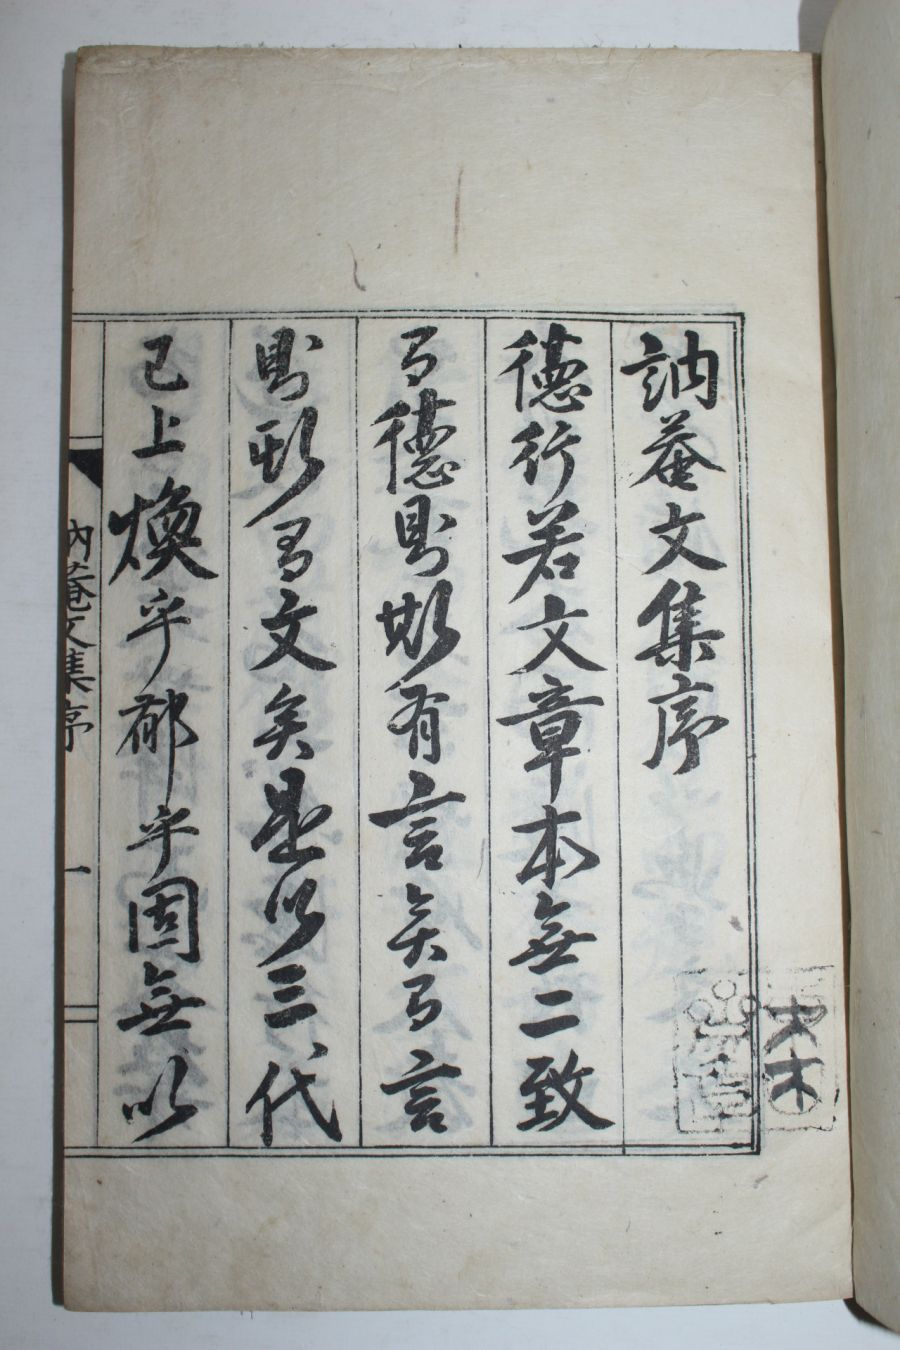 訥菴文集序
德行若文章本無二致
有德則斯有言矣有言
則斯有文矣是以三代
已上煥乎郁乎固無以
訥菴文集序
一